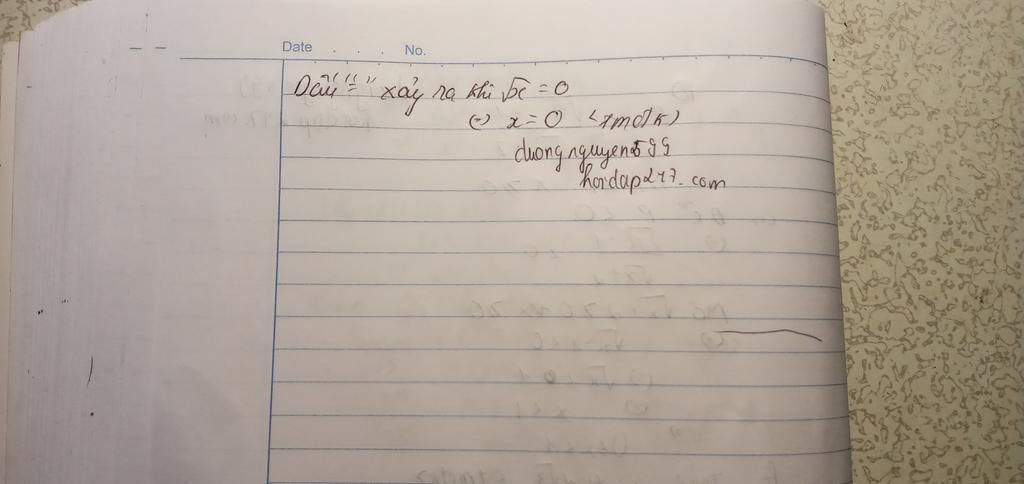 Date . . . No.
Dấu "=" xảy ra khi √x = 0
(=) x = 0 <tmđk)
duongnguyen599
hoidap247.com